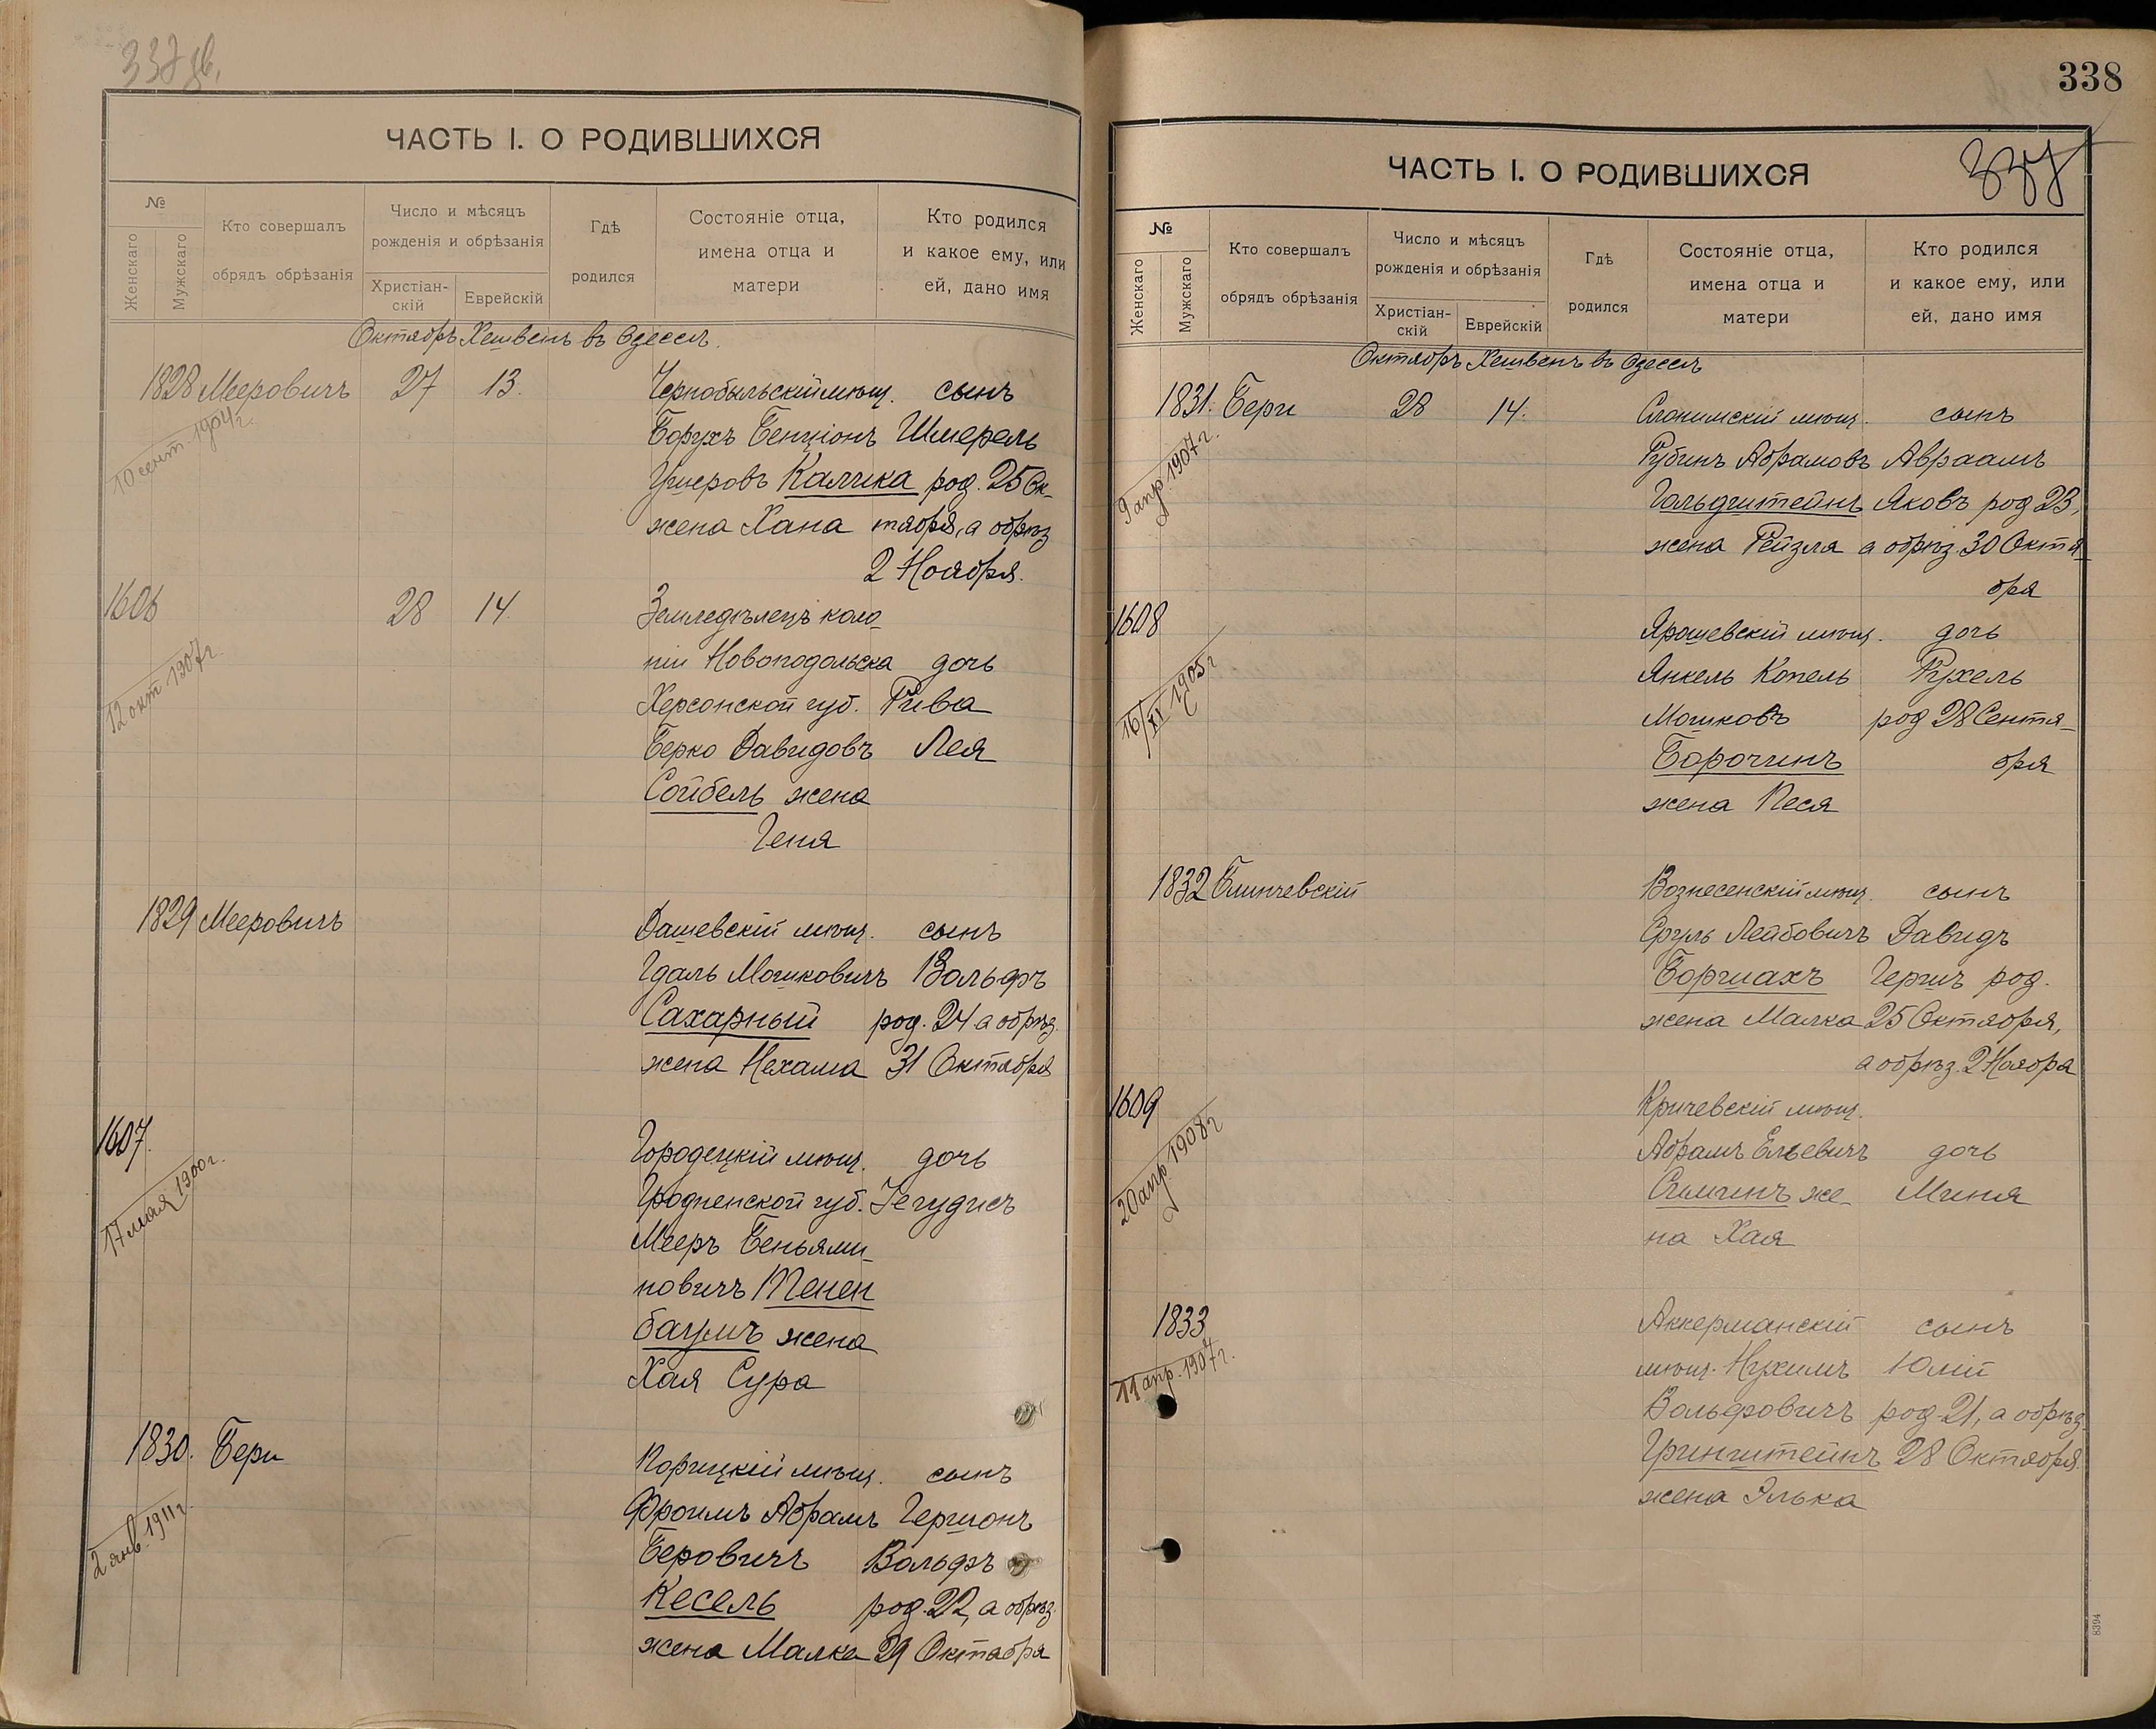 337 об.
ЧАСТЬ I. О РОДИВШИХСЯ
№
Женскаго
Мужскаго
Кто совершалъ
обрядъ обрѣзанія
Число и мѣсяцъ
рожденія и обрѣзанія
Христіан-
скій
Еврейскій
Гдѣ
родился
Состояніе отца,
имена отца и
матери
Кто родился
и какое ему, или
ей, дано имя
Октябрь Хешвенъ въ Одессѣ.
1828 Мееровичъ 27 13. Чернобыльскій мѣщ. сынъ
10 сент. 1904 г.
Борухъ Бенціонъ Шмерель
Ушеровъ Калика род. 25 Ок-
жена Хана тября, а обрѣз
2 Ноября.
1606 28 14. Земледѣлецъ коло-
12 окт. 1907 г.
ніи Новоподольска дочь
Херсонской губ. Рива
Берко Давидовъ Лея
Сойбель жена
Геня
1829 Мееровичъ Дашевскій мѣщ. сынъ
Гдаль Мошковичъ Вольфъ
Сахарный род. 24 а обрѣз.
жена Нехама 31 Октября
1607. Городецкій мѣщ. дочь
17 мая 1900 г.
Гродненской губ. Іегудисъ
Мееръ Беньями-
новичъ Тенен
баумъ жена
Хая Сура
1830. Бери Порицкій мѣщ. сынъ
2 янв. 1911 г.
Фроимъ Абрамъ Гершонъ
Беровичъ Вольфъ
Кесель род. 22, а обрѣз.
жена Малка 29 Октября
338
337
ЧАСТЬ I. О РОДИВШИХСЯ
№
Женскаго
Мужскаго
Кто совершалъ
обрядъ обрѣзанія
Число и мѣсяцъ
рожденія и обрѣзанія
Христіан-
скій
Еврейскій
Гдѣ
родился
Состояніе отца,
имена отца и
матери
Кто родился
и какое ему, или
ей, дано имя
Октябрь Хешвенъ въ Одессѣ
1831. Бери 28 14. Слонимскій мѣщ. сынъ
9 апр. 1907 г.
Рубинъ Абрамовъ Авраамъ
Гольдштейнъ Яковъ род 23,
жена Рейзля а обрѣз. 30 Октя-
бря
1608 Ярошевскій мѣщ. дочь
16/XI 1905 г
Янкель Копель Рухель
Мошковъ род 28 Сентя-
Борочинъ бря
жена Песя
1832 Блинчевскій Вознесенскій мѣщ. сынъ
Сруль Лейбовичъ Давидъ
Боршахъ Гершъ род.
жена Малка 25 Октября,
а обрѣз. 2 Ноября
1609 Кричевскій мѣщ.
20 апр. 1908 г
Абрамъ Ельевичъ дочь
Симкинъ же- Миня
на Хая
1833 Аккерманскій сынъ
11 апр. 1907 г.
мѣщ. Нухимъ Юлій
Вольфовичъ род. 21, а обрѣз.
Гринштейнъ 28 Октября.
жена Элька
8394